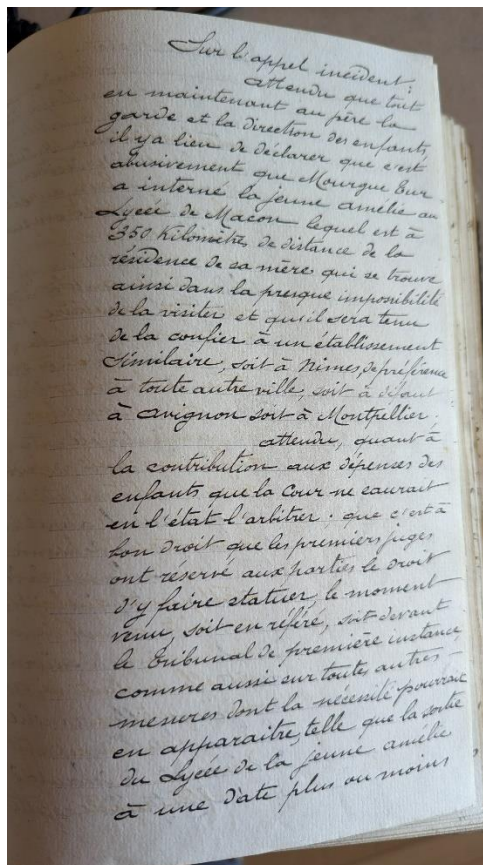 Sur l'appel incident:
attendu que tout
en maintenant au père la
garde et la direction des enfants,
il y a lieu de déclarer que c'est
abusivement que Mourgue Eur.
a interné la jeune Amélie au
Lycée de Macon lequel est à
350 Kilomètres de distance de la
résidence de sa mère qui se trouve
ainsi dans la presque impossibilité
de la visiter et qu'il sera tenu
de la confier à un établissement
similaire, soit à Nimes, de préférence
à toute autre ville, soit à défaut
à Avignon soit à Montpellier.
attendu, quant à
la contribution aux dépenses des
enfants que la Cour ne saurait
en l'état l'arbitrer. que c'est à
bon droit que les premiers juges
ont réservé aux parties le droit
d'y faire statuer, le moment
venu, soit en référé, soit devant
le tribunal de première instance,
comme aussi sur toutes autres
mesures dont la nécessité pourrait
en apparaitre, telle que la sortie
du Lycée de la jeune Amélie
à une date plus ou moins